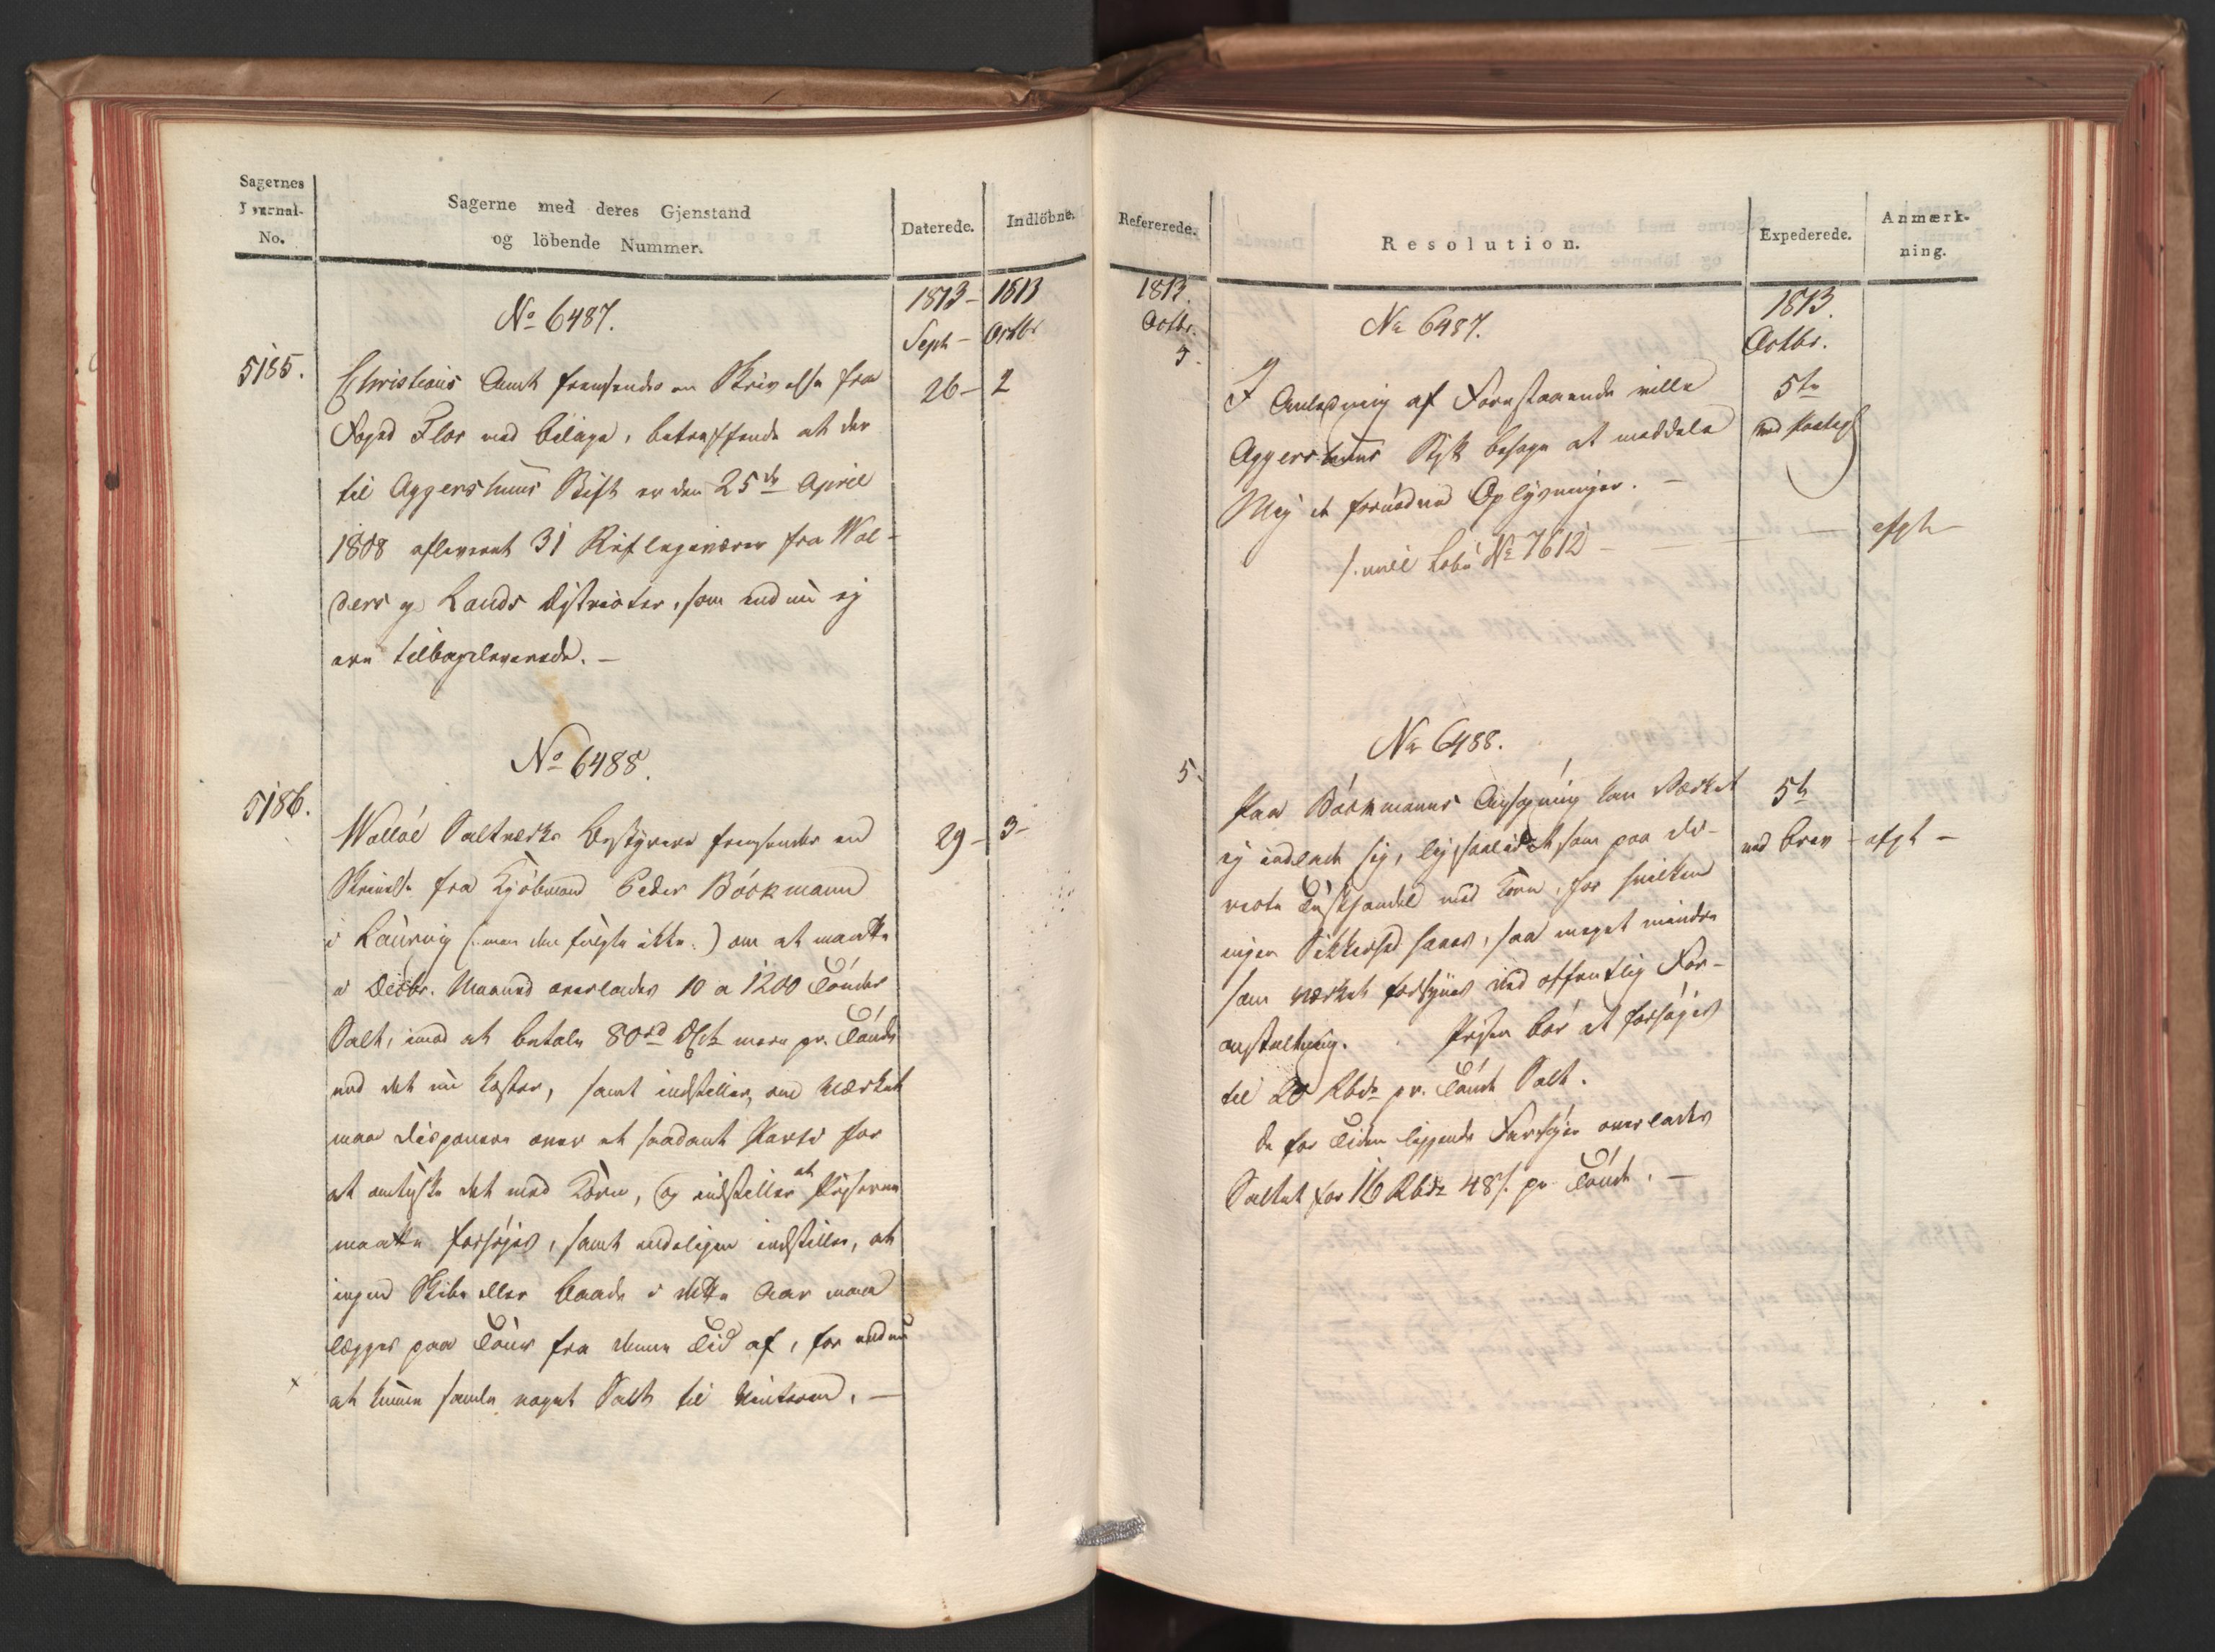 Sagernes
Journal-
No.
Sagerne med deres Gjenstand
og löbende Nummer.
Daterede.
Indlöbne.
No 6487.
1813 - 1813
Sept - Octbr
5185.
Christians Amt fremsender en Skrivelse fra
26 - 2
Foged Flor med Bilage, betræffende at der
til Aggershuus Stift er den 25de April
1808 afleveret 31 Riflegeværer fra Wal-
ders og Lands Districter, som endnu ej
ere tilbageleverede. —
No 6488.
5186.
Walløe Saltverks Bestyrere fremsender en
29 - 3 -
Skrivelse fra Kjøbmand Peder Böckmann
i Laurvig (: men den fulgte ikke :) om at maatte
i Decbr. Maaned overlades 10 a 1200 Tønder
Salt, imod at betale 80 rd mere pr. Tønde
end det nu koster, samt indstiller, om Værket
maa disponere over et saadant Partie for
at omtuske det med Korn, og indstiller at Priserne
maatte forhøjes, samt endeligen indstiller, at
ingen Skibe eller Baade i dette Aar maa
lægges paa Tour fra denne Tid af, for endnu
at kunne samle noget Salt til Vinteren. —
Refererede.
Resolution.
Expederede.
Anmærk-
ning.
1813.
Octbr.
5.
No 6487.
1813.
Octbr.
I Anledning af Forestaaende ville
5te
Aggershuus Stift behage at meddele
med
Mig de fornødne Oplysninger. —
No 7612 — afgt —
No 6488.
5.
Paa Böckmanns Ansøgning kan Værket
5te
ej indlade sig, ligesaalidet som paa di-
med Brev - afgt -
recte Tuskhandel med Korn, for hvilken
ingen Sikkerhed haves, saa meget mindre
som Værket forsynes ved offentlig For-
anstaltning. Prisen bør at forhøjes
til 20 Rbdr pr. Tønde Salt.
De for Tiden liggende Fartøjer overlades
Saltet for 16 Rbdr 48 s. pr Tønde. —